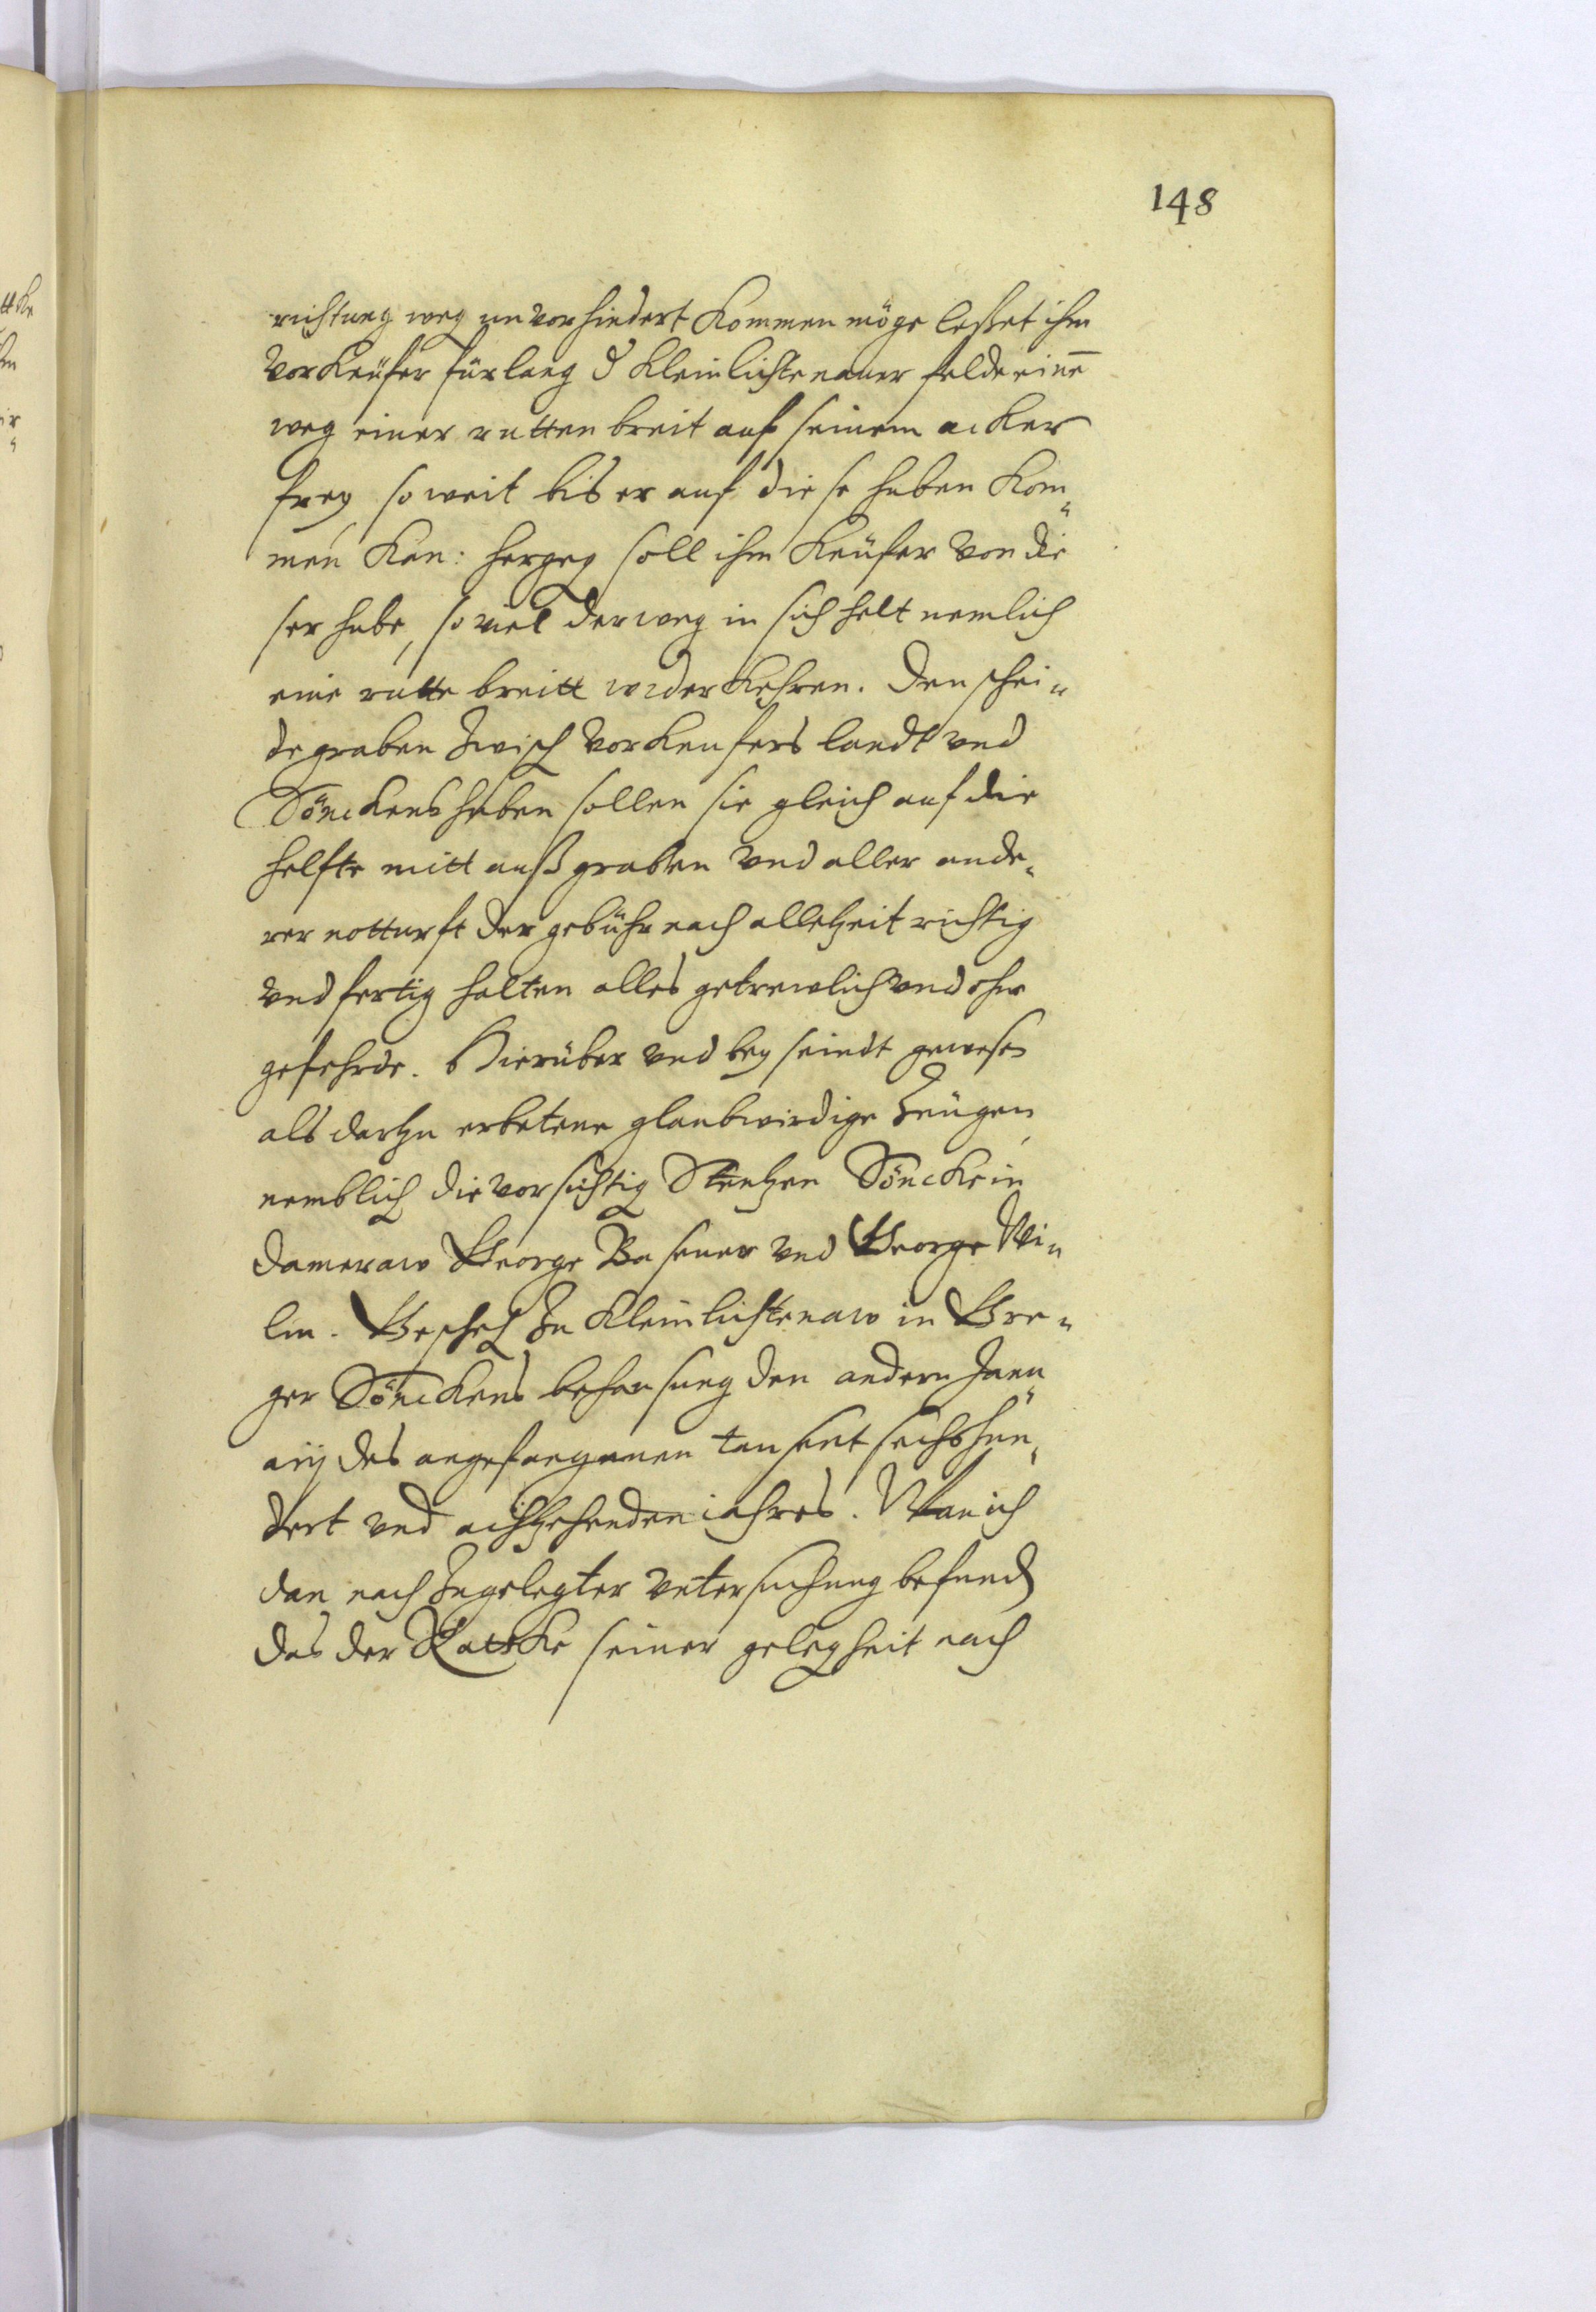 148
richtung weg unvorhindert kommen möge lesset ihm
vorkeüfer fürlang d kleinlichtenauer felde eine
weg einer rutten breit auf seinem acker
frey so weit bis er auf diese huben kom„
men kan: hergeg soll ihm keüfer von die
ser hube, so viel der weg in sich helt nemlich
eine rutte breitt wider kehren. Den schei„
degraben zwisch vorkeufers landt und
Töncken huben sollen sie gleich auf die
helfte mitt außgraben und aller ande„
rer notturft der gebühr nach alletzeit richtig
und fertig halten alles getrewlich und ohne
gefehrde. Hierüber und bey seindt gewesen
als dartzu erbetene glaubwirdige Zeügen
nemblich die vorsichtig Stentzen Töncke in
Dameraw George Basener und George Wi„
lm. Gescheh zu Kleinlichtenaw in Gre„
ger Tönckens behausung den andern Janu„
arij des angefangenen tausent sechshun„
dert und achtzehenden iahres. Wan ich
dan nach zugelegter untersuchung befund
das der Ratzke seiner gelegheit nach